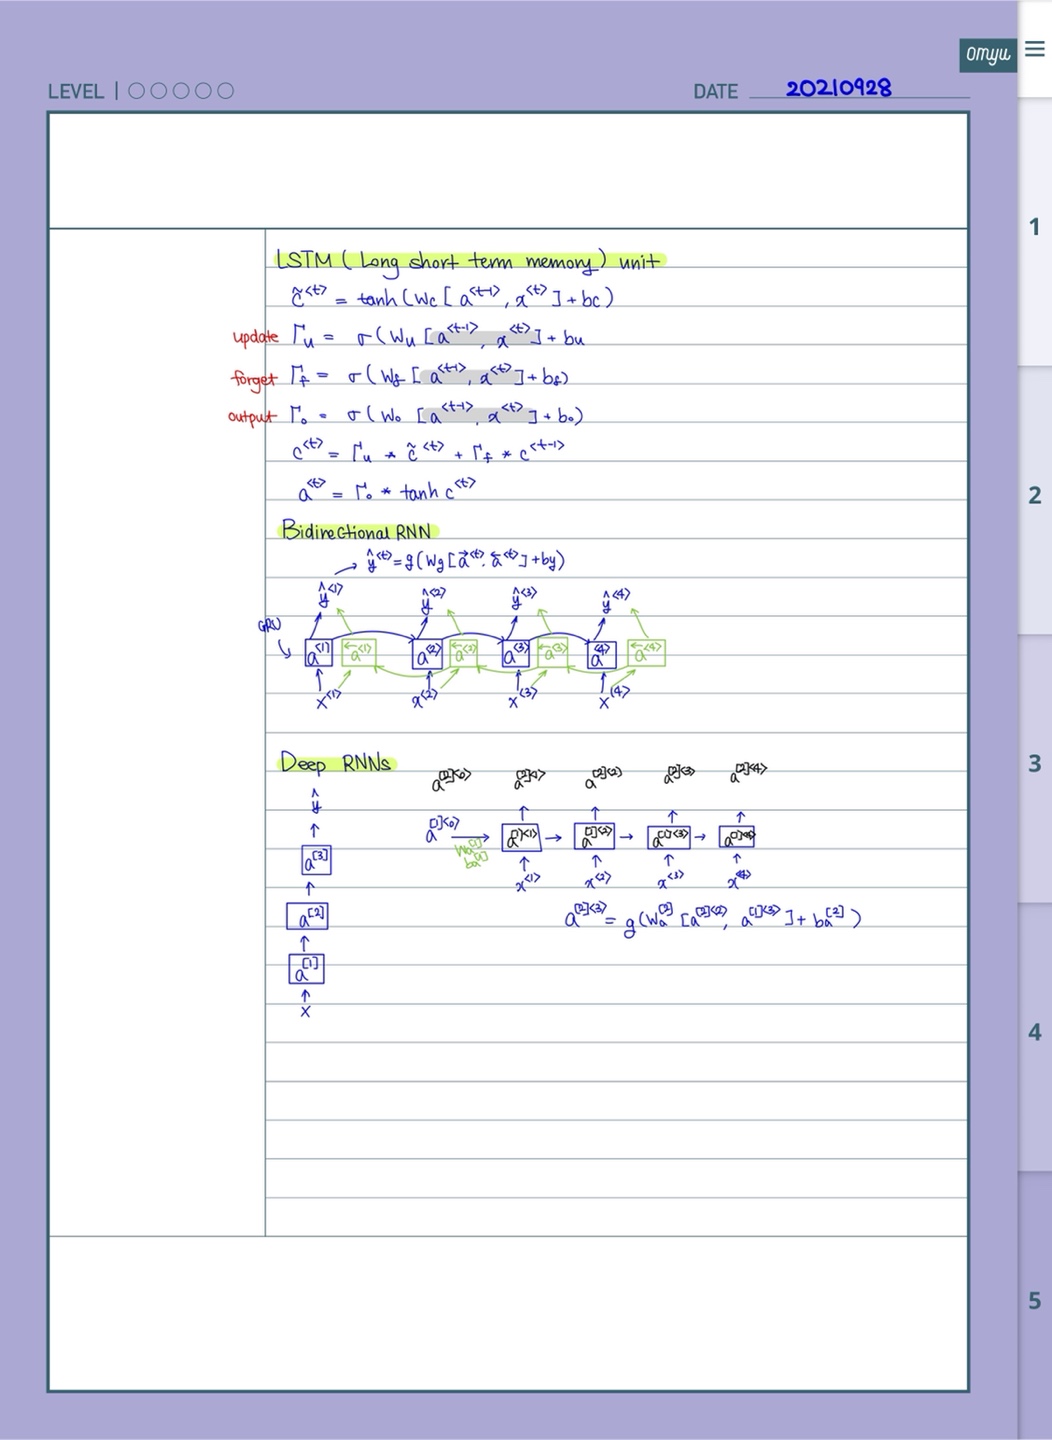 omyu
LEVEL | ○○○○○
DATE 20210928
LSTM (Long short term memory) unit
c̃<t> = tanh(Wc[a<t-1>, x<t>] + bc)
update Γu = σ(Wu[a<t-1>, x<t>] + bu
forget Γf = σ(Wf[a<t-1>, x<t>] + bf)
output Γo = σ(Wo[a<t-1>, x<t>] + bo)
c<t> = Γu * c̃<t> + Γf * c<t-1>
a<t> = Γo * tanh c<t>
Bidirectional RNN
ŷ<t> = g(Wg[a⃗<t>, a⃖<t>] + by)
ŷ<1> ŷ<2> ŷ<3> ŷ<4>
GRU
a<1> a⃖<1> a<2> a⃖<2> a<3> a⃖<3> a<4> a⃖<4>
x<1> x<2> x<3> x<4>
Deep RNNs
a[2]<0> a[2]<1> a[2]<2> a[2]<3> a[2]<4>
ŷ
a[1]<0> → a[1]<1> → a[1]<2> → a[1]<3> → a[1]<4>
Wa[1]
ba[1]
a[3]
x<1> x<2> x<3> x<4>
a[2]
a[2]<3> = g(Wa[2][a[2]<2>, a[1]<3>] + ba[2])
a[1]
x
1
2
3
4
5